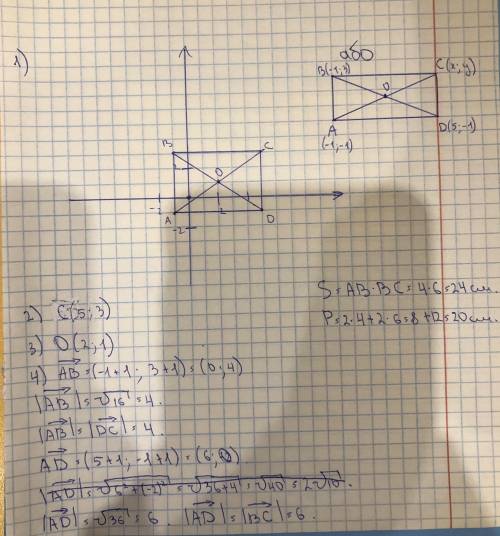 1)
або
B(-1; 3)
C(x; y)
O
A
(-1; -1)
D(5; -1)
B
C
O
2
-2
2
A
D
-2
S = AB · BC = 4 · 6 = 24 см.
P = 2 · 4 + 2 · 6 = 8 + 12 = 20 см.
2) C(5; 3)
3) O(2; 1)
4) AB = (-1+1; 3+1) = (0; 4)
|AB| = √16 = 4.
|AB| = |DC| = 4.
AD = (5+1; -1+1) = (6; 0)
|AD| = √6²+(-2)² = √36+4 = √40 = 2√10.
|AD| = √36 = 6. |AD| = |BC| = 6.